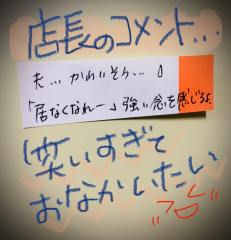 店長のコメント...
夫... かわいそう...
「居なくなれー」強い念を感じるよ
笑いすぎて
おなかいたい